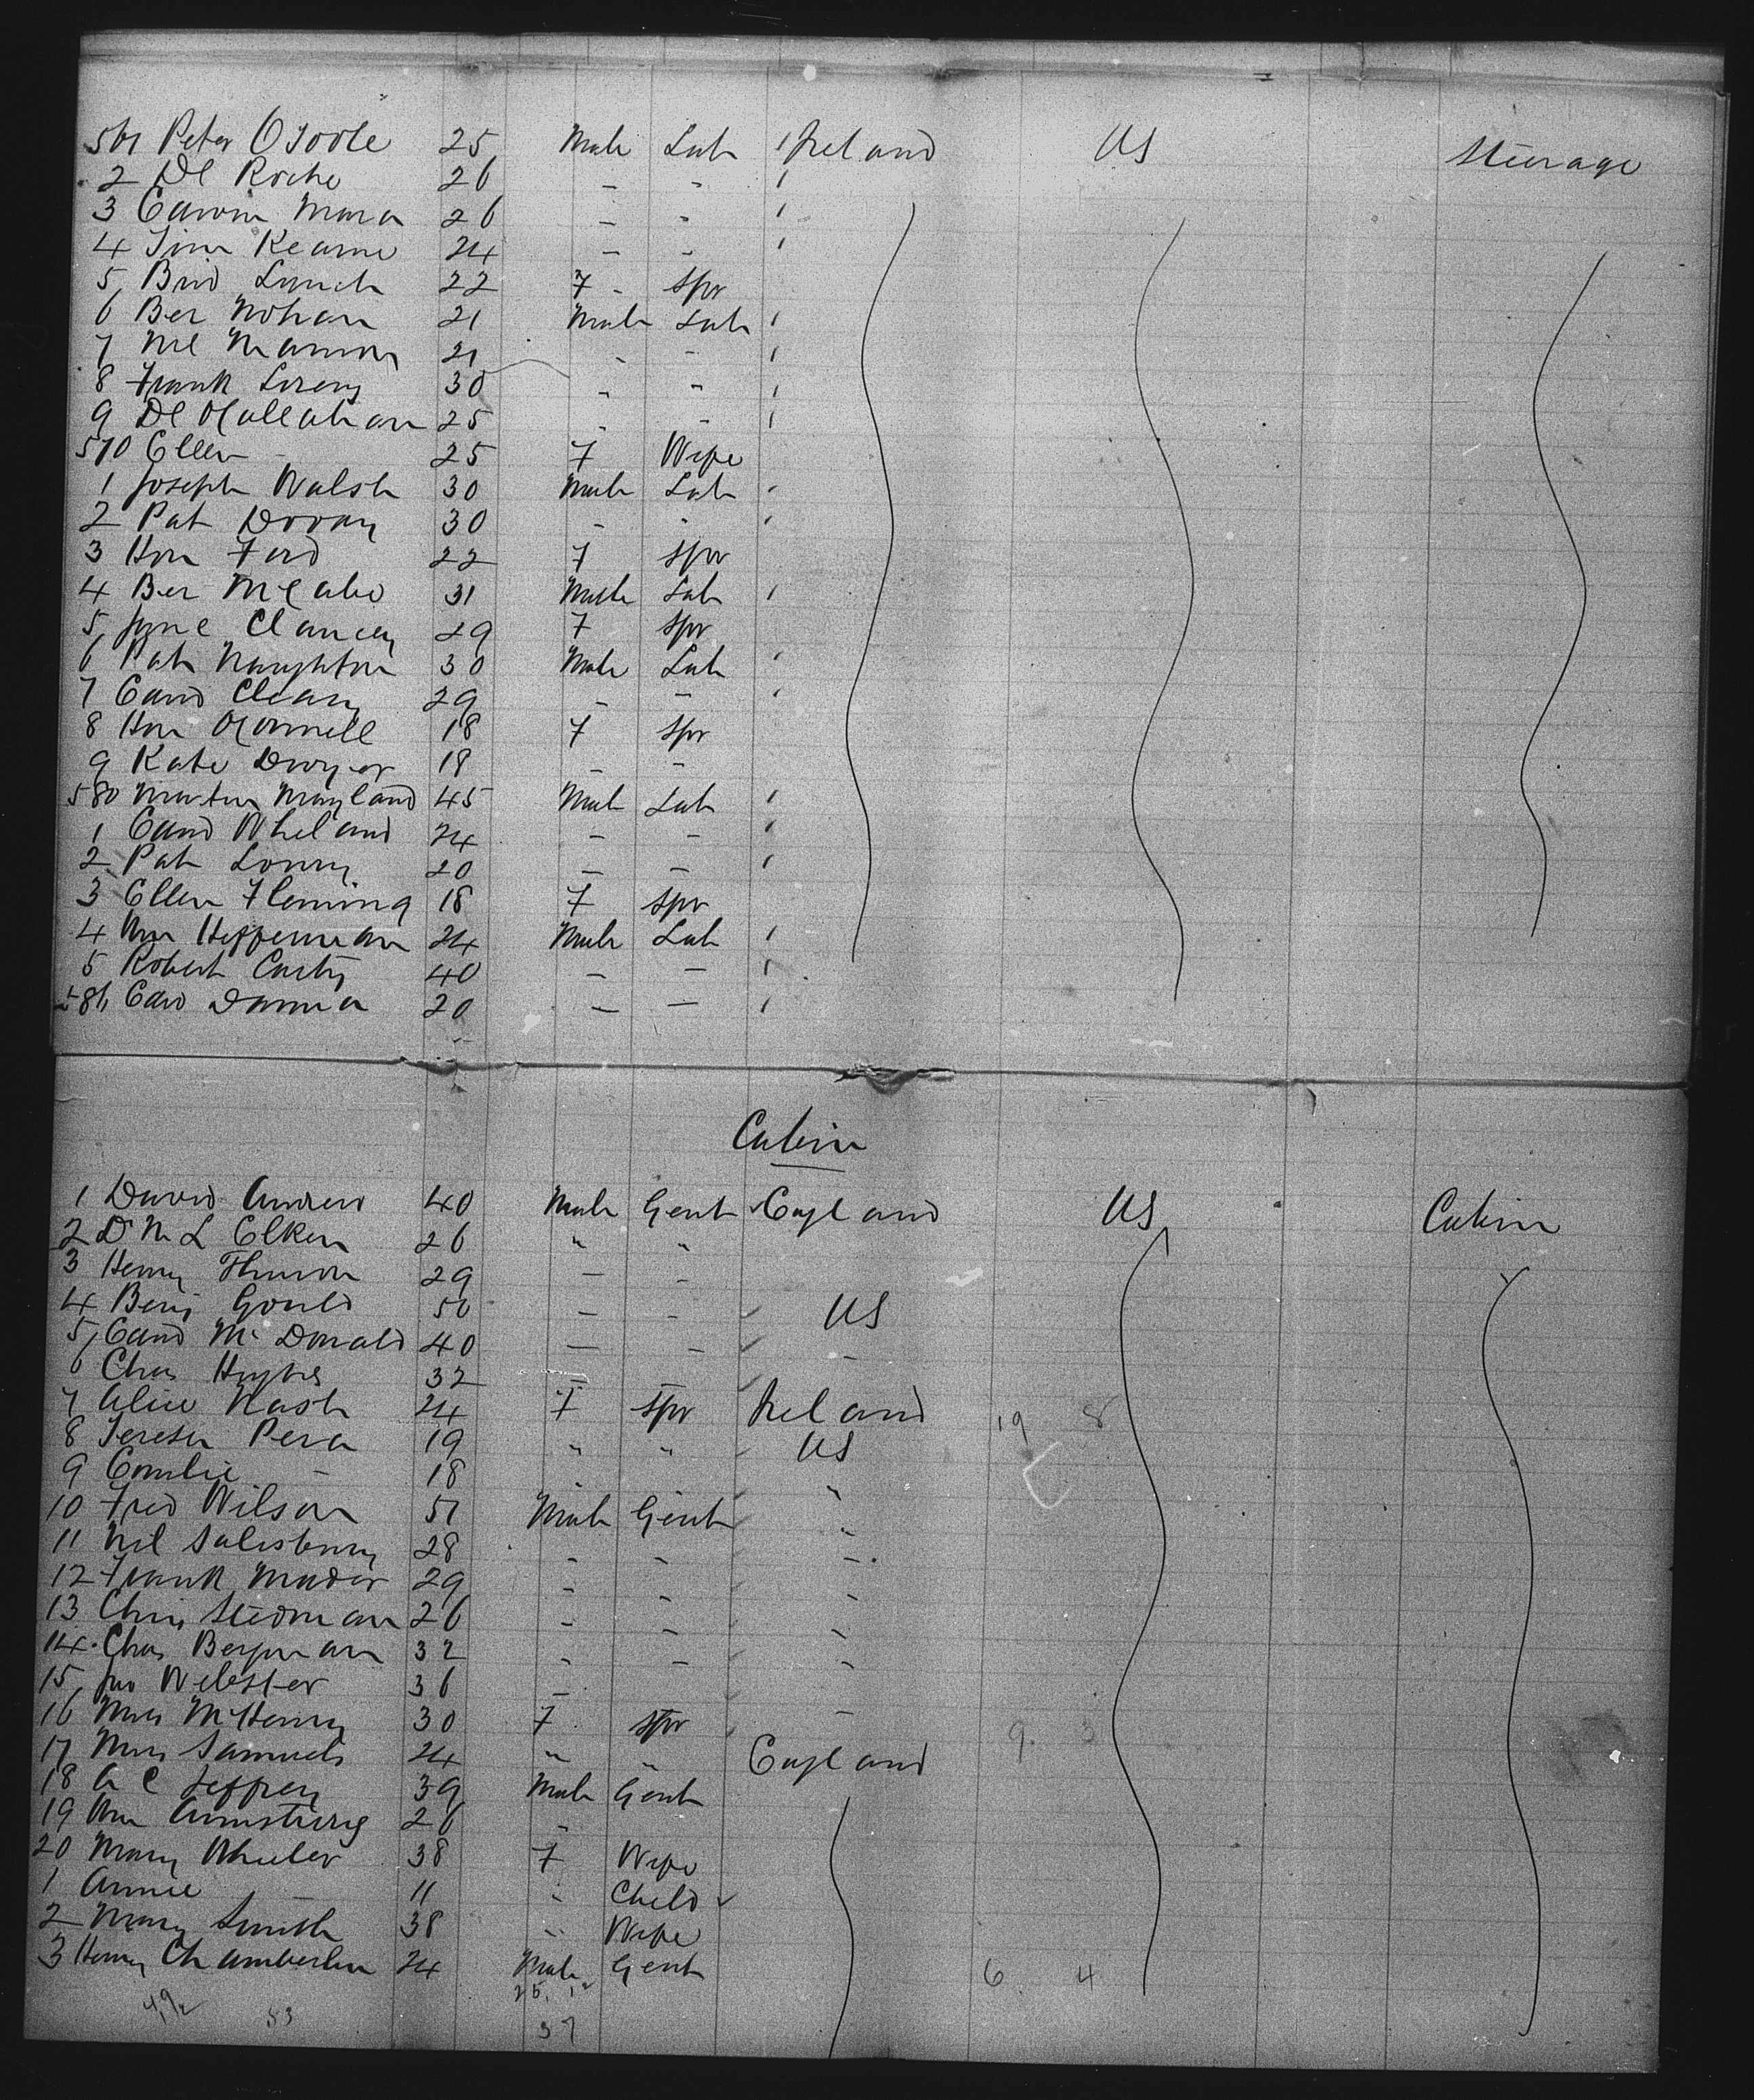 561 Peter O Toole 25 Male Lab Ireland US Steerage
2 Dl Roche 26 - -
3 Edwin Mara 26 - -
4 Tim Kearne 24 - -
5 Brid Lynch 22 F - Spr
6 Ber Nohan 21 Male Lab
7 Ml 21 - -
8 Frank 30 - -
9 Dl OCallahan 25 - -
570 Ellen - 25 F Wife
1 Joseph Walsh 30 Male Lab
2 Pat Doran 30 - -
3 Hon Ford 22 F Spr
4 Ber McCabe 31 Male Lab
5 Clancy 29 F Spr
6 Pat Naughton 30 Male Lab
7 Edwd Cleary 29 - -
8 Hon OConnell 18 F Spr
9 Kate Dwyer 18 - -
580 Martin Mayland 45 Male Lab
1 Edwd Wheland 24 - -
2 Pat 20 - -
3 Ellen Fleming 18 F Spr
4 Wm Heffernan 24 Male Lab
5 Robert 40 - -
586 Edwd 20 - -
Cabin
1 David Andrew 40 Male Gent England US Cabin
2 D M L Elken 26 " "
3 Henry 29 - -
4 Benj Gould 50 - - US
5 Edwd Mc Donald 40 - - -
6 Chas Hughes 32 - -
7 Alice Nash 24 F Spr Ireland 19 8
8 Teresa Pera 19 " " US
9 Emilie - 18 "
10 Fred Wilson 51 Male Gent "
11 Salisbury 28 - - -
12 Frank Mader 29 - - -
13 Chas Stedman 26 - - -
14 Chas Bergman 32 - - -
15 Jno Webster 36 -
16 Mrs McHenry 30 F Spr - 9 3
17 Mrs Samuels 24 " " England
18 A C Jeffrey 39 Male Gent
19 Wm Armstrong 26 -
20 Mary Wheeler 38 F Wife
1 Annie - 11 " Child
2 Mary Smith 38 " Wife
3 Henry Chamberlin 24 Male Gent 6 4
25 12
83 37